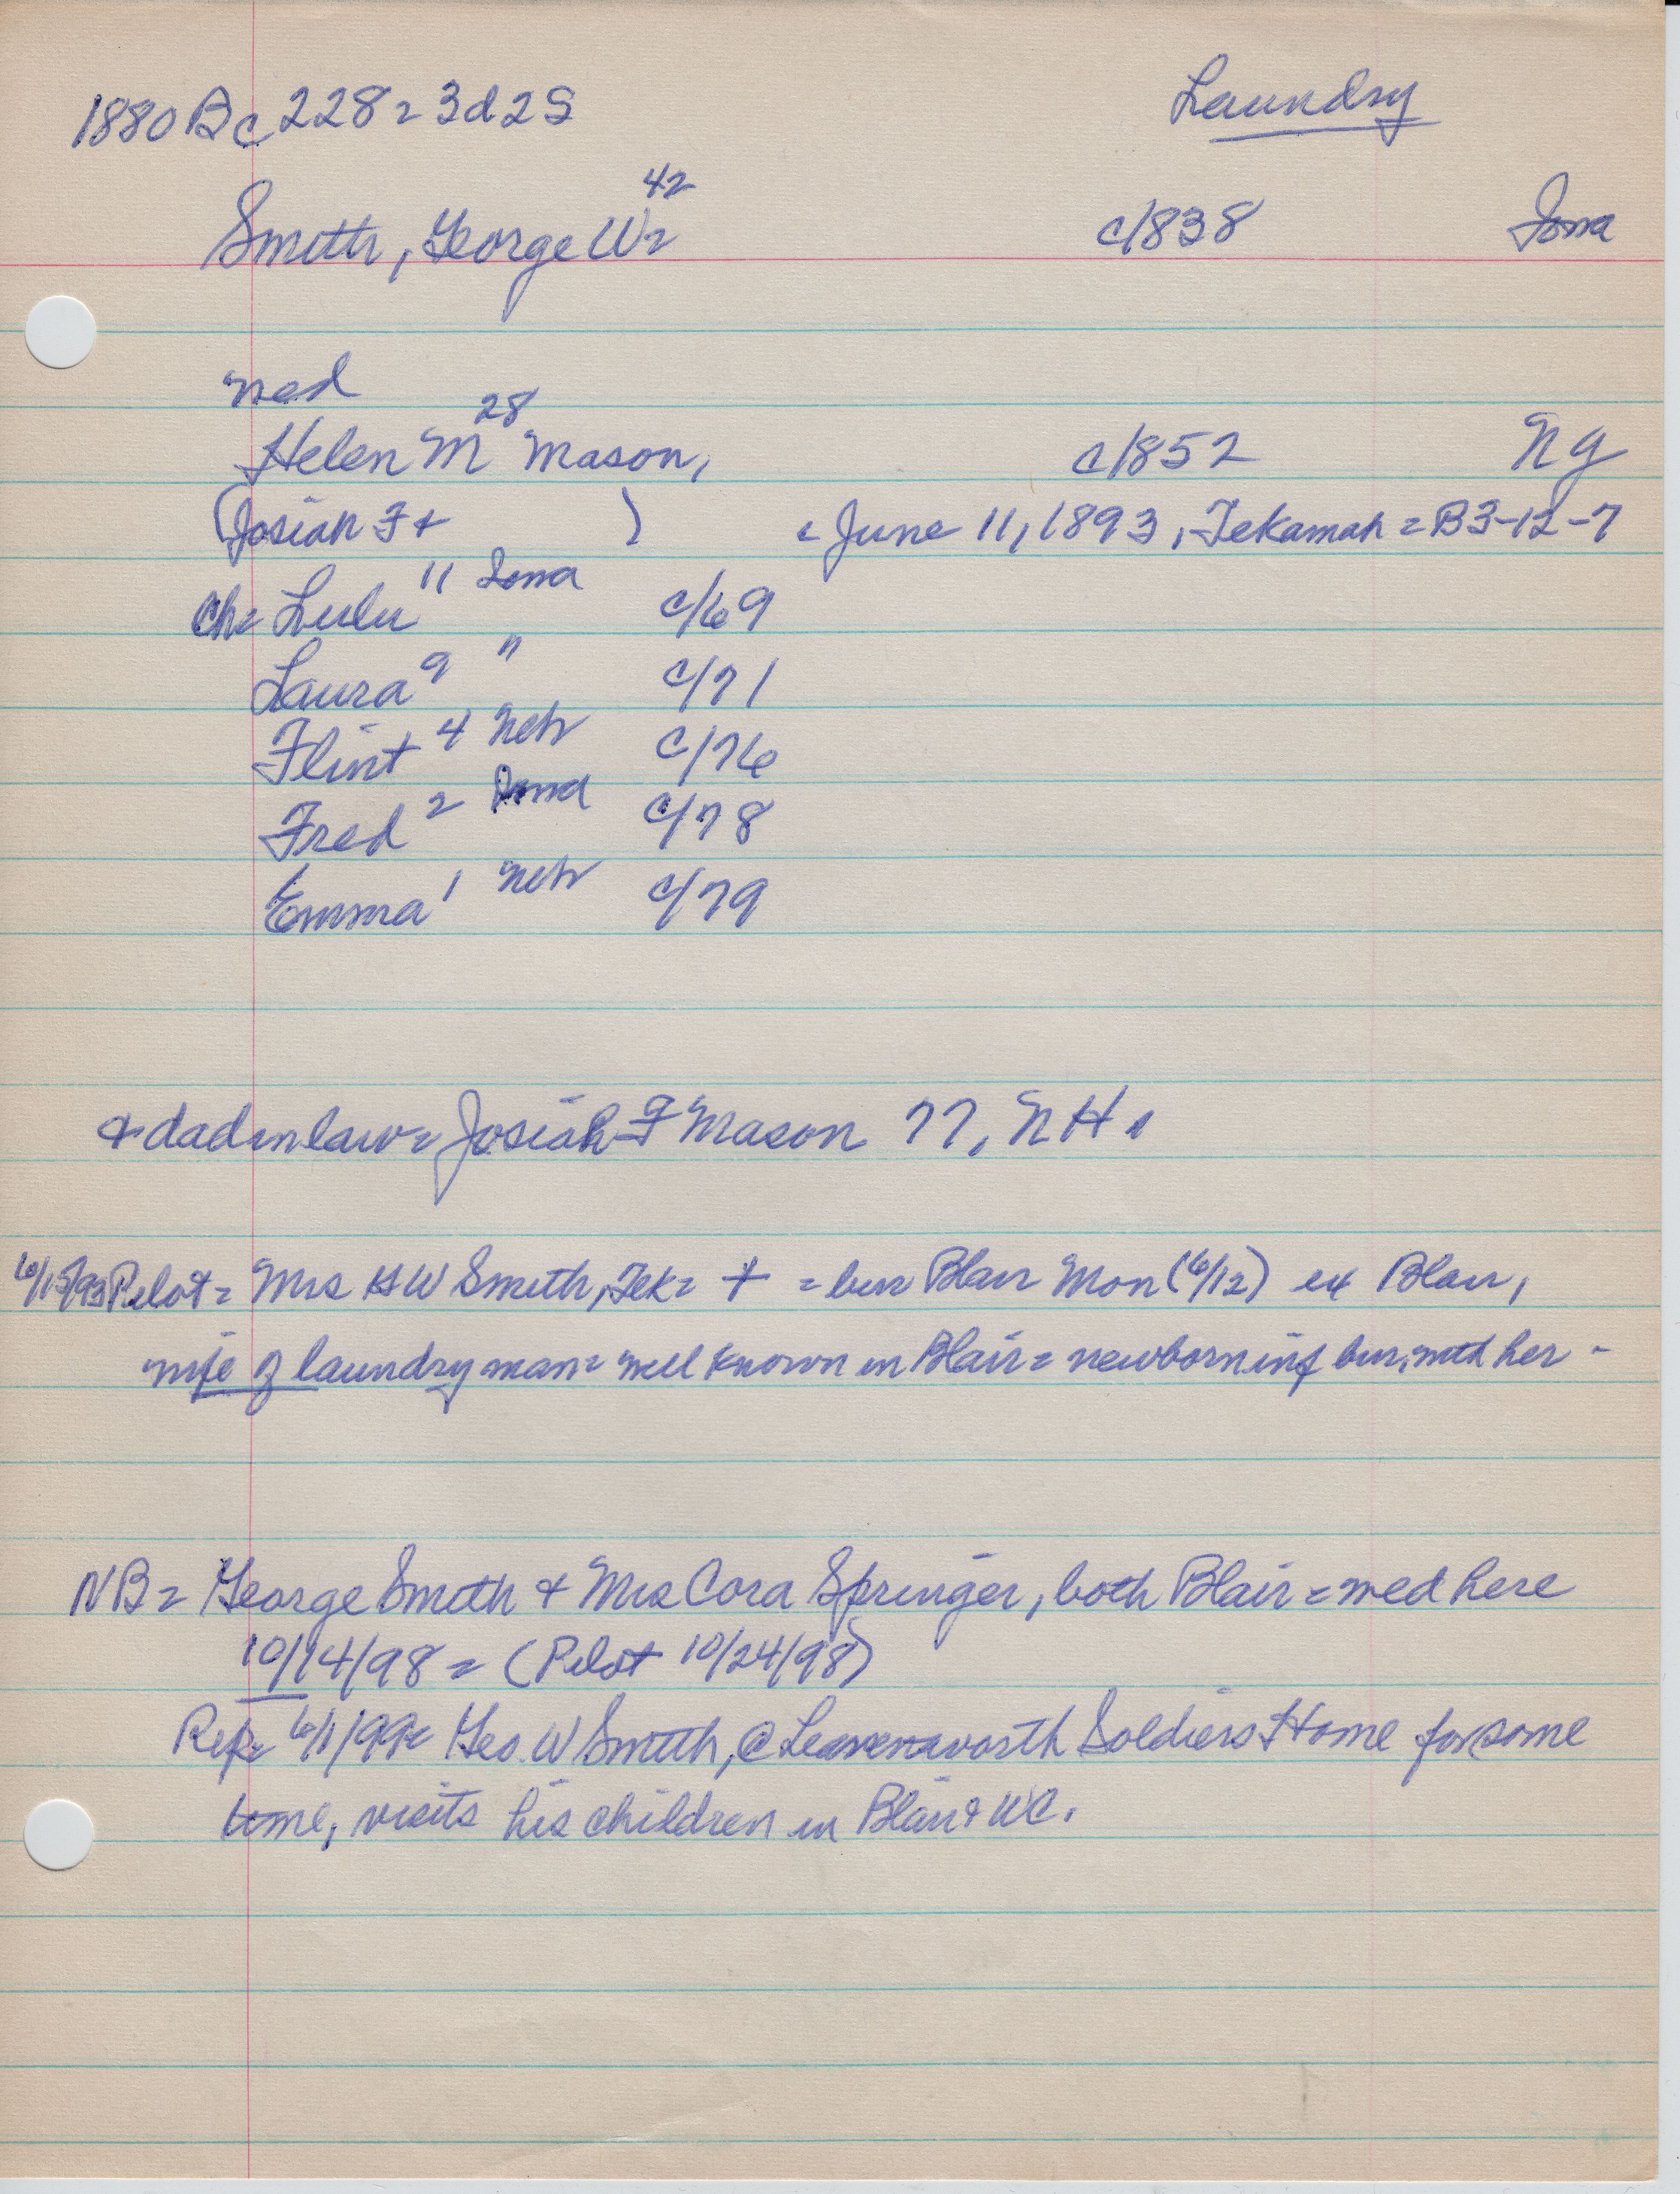 1880 Bc 228 = 3d2S
Laundry
Smith, George W = 42 c/838 Iowa
med
Helen M 28 Mason, c/852 NY
(Josiah F + ) - June 11, 1893, Tekamah = B3-12-7
Ch = Lulu 11 Iowa c/69
Laura 9 " c/71
Flint 4 Neb c/76
Fred 2 Iowa c/78
Emma 1 Neb c/79
+ dadinlaw = Josiah F Mason 77, NH.
6/15/93 Pilot = Mrs GW Smith, Tek = + = bur Blair Mon (6/12) ex Blair,
wife of laundry man = well known in Blair = newborn inf bur. with her -
NB = George Smith & Mrs Cora Springer, both Blair = med here
10/14/98 = (Pilot 10/24/98)
Rep = 6/1/99 = Geo. W Smith, @ Leavenworth Soldiers Home for some
time, visits his children in Blair & WC.